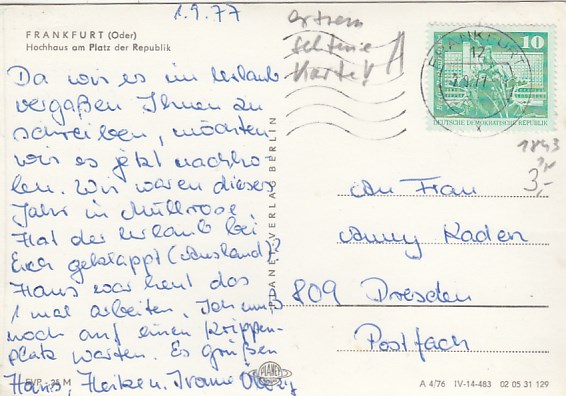 1.9.77
FRANKFURT (Oder)
Hochhaus am Platz der Republik
Da wir es im Urlaub
vergaßen Ihnen zu
schreiben, möchten
wir es jetzt nachho-
len. Wir waren dieses
Jahr in Müllrose.
Hat der Urlaub bei
Euch geklappt (Ausland)?
Hans war heut das
1 mal arbeiten. Ich muß
noch auf einen Krippen-
platz warten. Es grüßen
Hans, Heiken.
EVP -,25 M
PLANET-VERLAG BERLIN
PLANET
extrem
seltene
Karte!
FRANKFURT
10
DEUTSCHE DEMOKRATISCHE REPUBLIK
1843
3,-
An Frau
Anny Kaden
809 Dresden
Postfach
A 4/76 IV-14-483 02 05 31 129